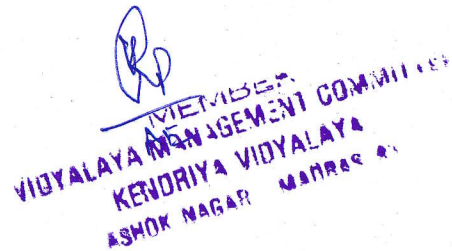 MEMBER
VIDYALAYA MANAGEMENT COMMITTEE
KENDRIYA VIDYALAYA
ASHOK NAGAR MADRAS